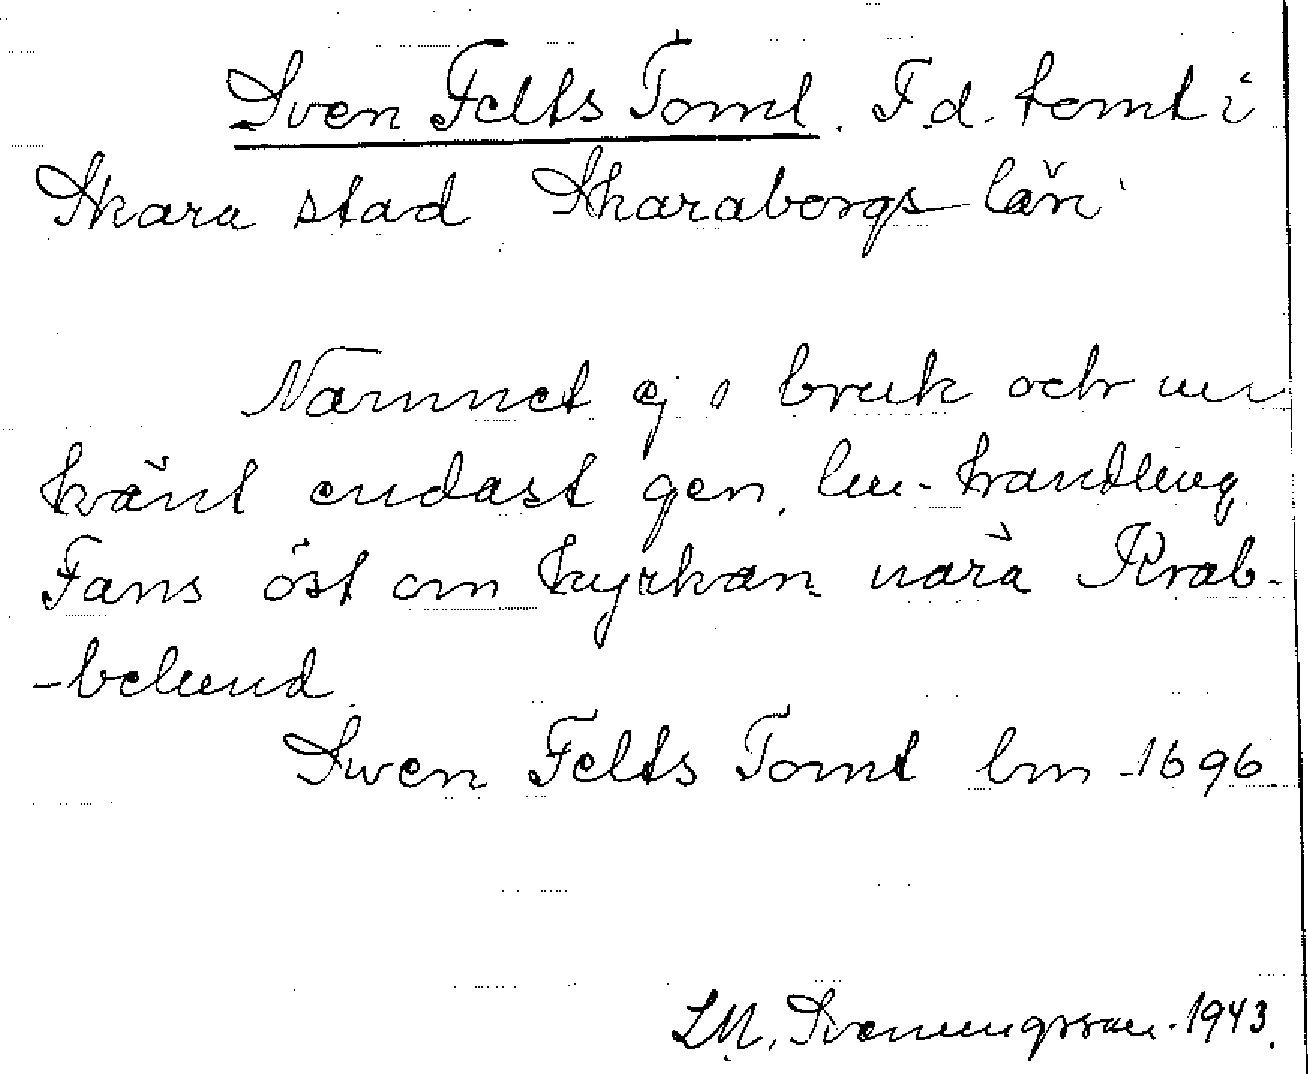 Sven Felts Tomt. F.d. tomt i
Skara stad Skaraborgs län
Namnet ej i bruk och nu
känt endast gen. lm-handling
Fans öst om kyrkan nära Krab-
-belund.
Swen Felts Tomt lm 1696
L.M. Svenungsson. 1943.